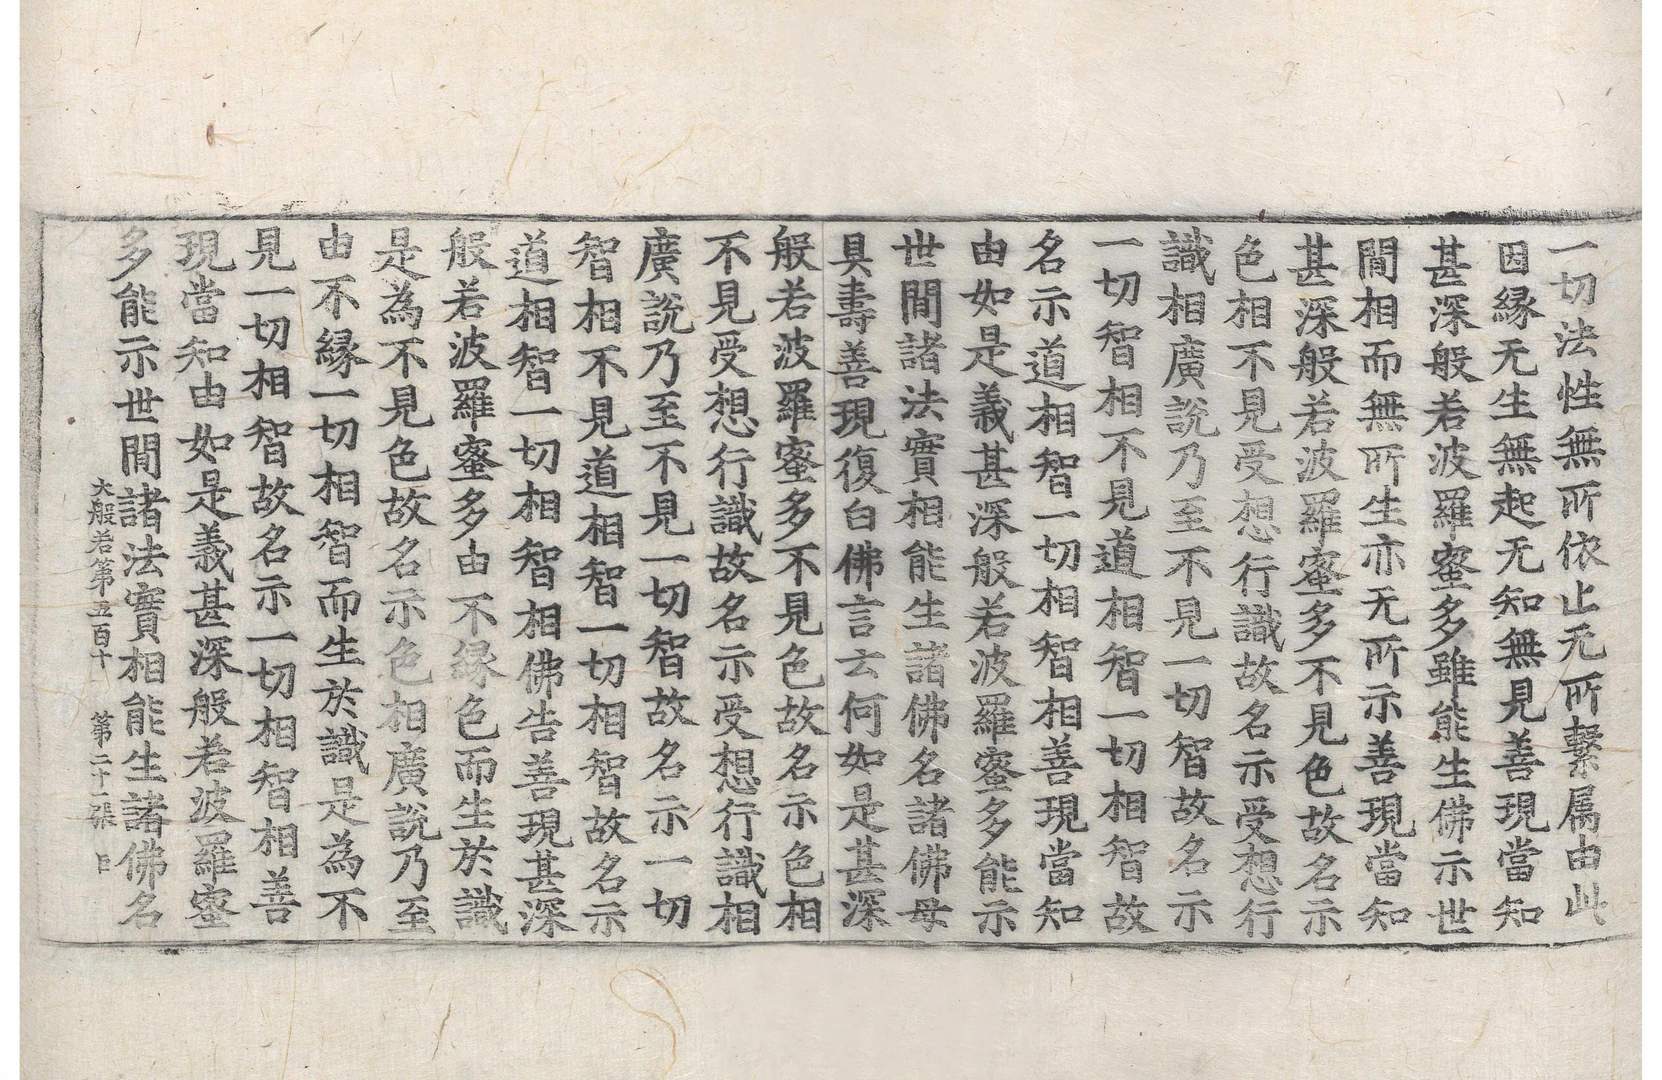 一切法性無所依止无所繫属由此
因縁无生無起无知無見善現當知
甚深般若波羅蜜多雖能生佛示世
間相而無所生亦无所示善現當知
甚深般若波羅蜜多不見色故名示
色相不見受想行識故名示受想行
識相廣說乃至不見一切智故名示
一切智相不見道相智一切相智故
名示道相智一切相智相善現當知
由如是義甚深般若波羅蜜多能示
世間諸法實相能生諸佛名諸佛母
具壽善現復白佛言云何如是甚深
般若波羅蜜多不見色故名示色相
不見受想行識故名示受想行識相
廣說乃至不見一切智故名示一切
智相不見道相智一切相智故名示
道相智一切相智相佛告善現甚深
般若波羅蜜多由不縁色而生於識
是為不見色故名示色相廣說乃至
由不縁一切相智而生於識是為不
見一切相智故名示一切相智相善
現當知由如是義甚深般若波羅蜜
多能示世間諸法實相能生諸佛名
大般若第五百十 第二十張